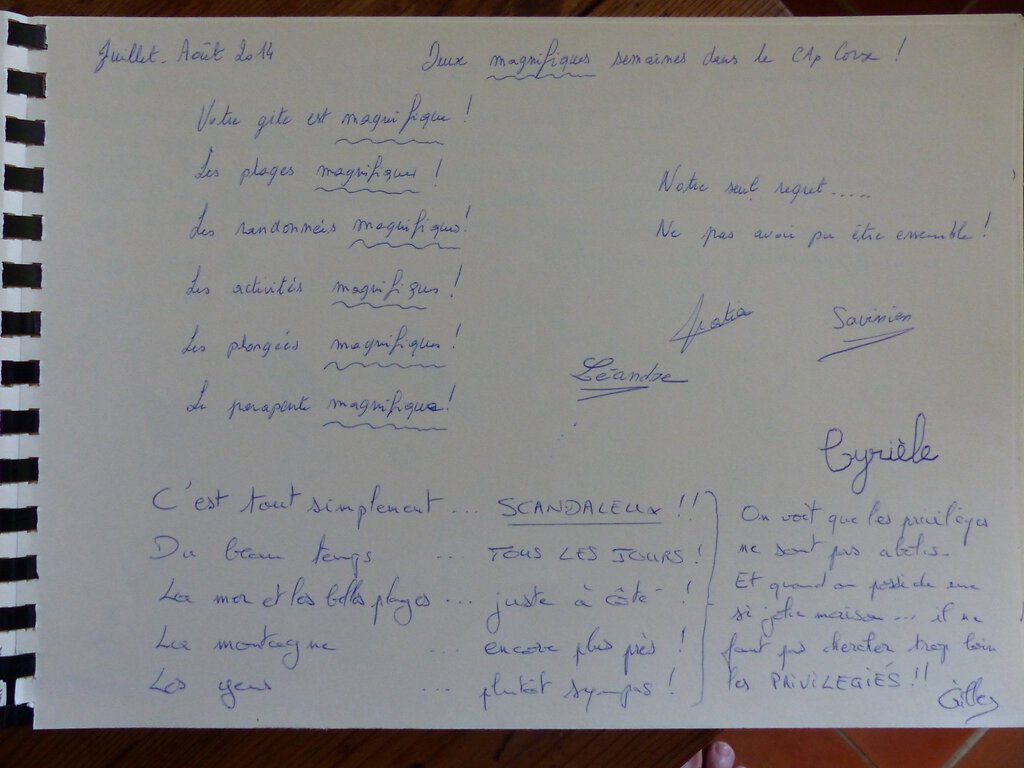 Juillet. Août 2014
Deux magnifiques semaines dans le CAp Corse !
Votre gite est magnifique !
Les plages magnifiques !
Les randonnées magnifiques !
Les activités magnifiques !
Les plongées magnifiques !
Le parapente magnifique !
Notre seul regret.....
Ne pas avoir pu être ensemble !
Savinien
Léandre
Cyrièle
C'est tout simplement ... SCANDALEUX !!
Du beau temps ... TOUS LES JOURS !
La mer et les belles plages ... juste à côté !
La montagne ... encore plus près !
Les gens ... plutôt sympas !
On voit que les privilèges
ne sont pas abolis.
Et quand on possède une
si jolie maison ... il ne
faut pas chercher trop loin
les PRIVILEGIÉS !!
Gilles